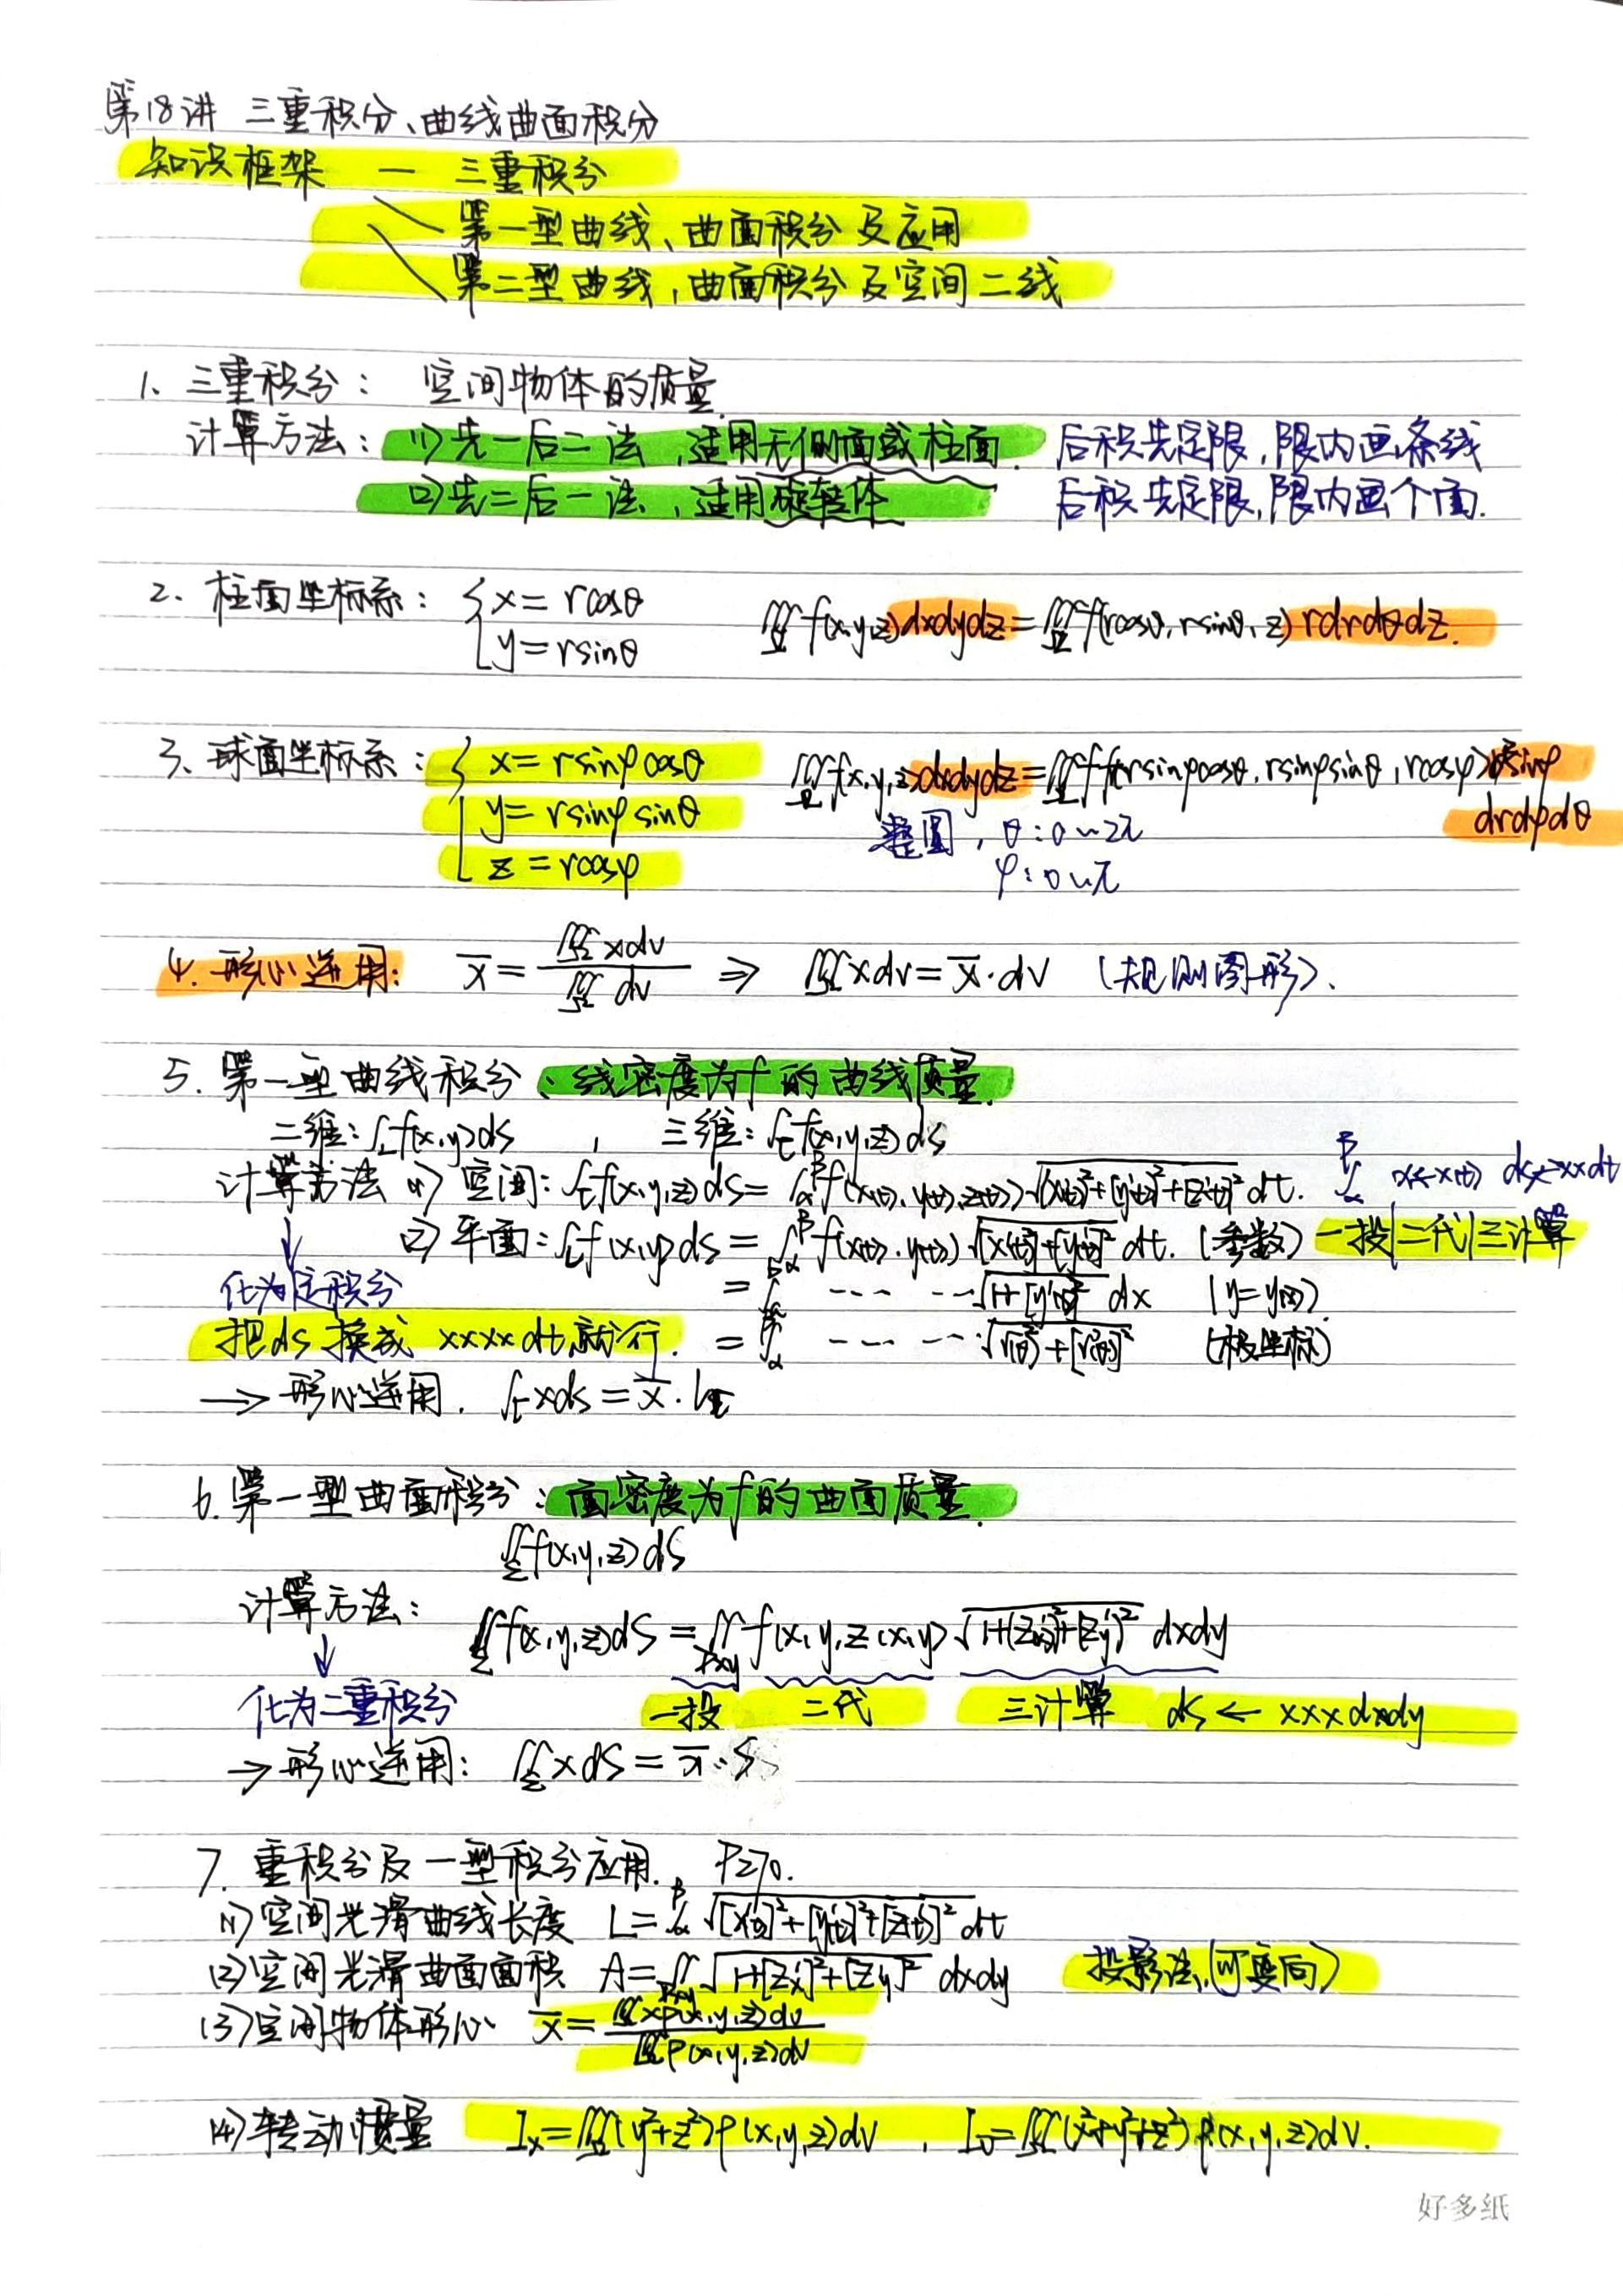 第18讲 三重积分、曲线曲面积分
知识框架 — 三重积分
第一型曲线、曲面积分及应用
第二型曲线,曲面积分及空间二线
1、三重积分: 空间物体的质量.
计算方法: (1)先一后二法,适用无侧面或柱面. 后积先定限,限内画条线
(2)先二后一法,适用旋转体 后积先定限,限内画个面.
2、柱面坐标系: { x = rcosθ
y = rsinθ ∭Ω f(x,y,z)dxdydz = ∭Ω f(rcosθ, rsinθ, z) rdrdθdz.
3、球面坐标系: { x = rsinφcosθ ∭Ω f(x,y,z)dxdydz = ∭Ω f(rsinφcosθ, rsinφsinθ, rcosφ) r²sinφ
y = rsinφsinθ 整圆, θ: 0~2π drdφdθ
z = rcosφ φ: 0~π
4. 形心逆用: x̄ = ∭Ω xdv / ∭Ω dv ⇒ ∭Ω xdv = x̄·dv (规则图形).
5. 第一型曲线积分: 线密度为f的曲线质量.
二维: ∫L f(x,y)ds , 三维: ∫Γ f(x,y,z)ds
计算方法 (1) 空间: ∫Γ f(x,y,z)ds = ∫α^β f(x(t), y(t), z(t)) √([x'(t)]²+[y'(t)]²+[z'(t)]²) dt. ∫α^β x←x(t) ds←xxdt
↓ (2) 平面: ∫L f(x,y)ds = ∫α^β f(x(t), y(t)) √([x'(t)]²+[y'(t)]²) dt. (参数) 一投|二代|三计算
化为定积分 = ∫ --- --- √(1+[y'(x)]²) dx (y=y(x))
把ds换成 xxxx dt 就行. = ∫α^β --- --- √([r(θ)]²+[r'(θ)]²) (极坐标)
→ 形心逆用. ∫Γ xds = x̄·lΓ
6. 第一型曲面积分: 面密度为f的曲面质量.
∬Σ f(x,y,z)dS
计算方法: ∬Σ f(x,y,z)dS = ∬Dxy f(x,y,z(x,y)) √(1+(z'x)²+(z'y)²) dxdy
↓
化为二重积分 一投 二代 三计算 dS ← xxx dxdy
→ 形心逆用: ∬Σ xdS = x̄·S
7. 重积分及一型积分应用. ρ≥0.
(1)空间光滑曲线长度 L = ∫α^β √([x'(t)]²+[y'(t)]²+[z'(t)]²) dt
(2)空间光滑曲面面积 A = ∬Dxy √(1+[z'x]²+[z'y]²) dxdy 投影法,(可变向)
(3)空间物体形心 x̄ = ∭Ω xρ(x,y,z)dv / ∭Ω ρ(x,y,z)dv
(4)转动惯量 Ix = ∭Ω (y²+z²)ρ(x,y,z)dv , I0 = ∭Ω (x²+y²+z²)ρ(x,y,z)dv.
好多纸